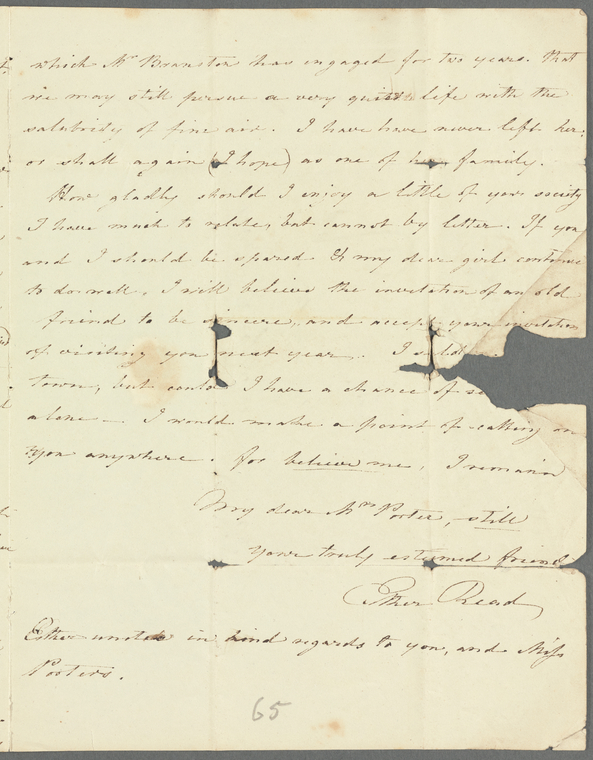 which Mr Branston has engaged for two years. that
we may still persue a very quiet life with the
salubrity of fine air. I have have never left her,
or shall again (I hope) as one of her family.
How gladly should I enjoy a little of your society
I have much to relate, but cannot by letter. If you
and I should be spared & my dear girl continue
to do well, I will believe the invitation of an old
friend to be sincere, and accept your invitation
of visiting you next year. I
town, but could I have a chance of
alone — I would make a point of calling on
you anywhere. for believe me, I remain
My dear Mrs Porter, still
your truly esteemed friend
Esther Read
Esther unites in kind regards to you, and Miss
Porters.
65